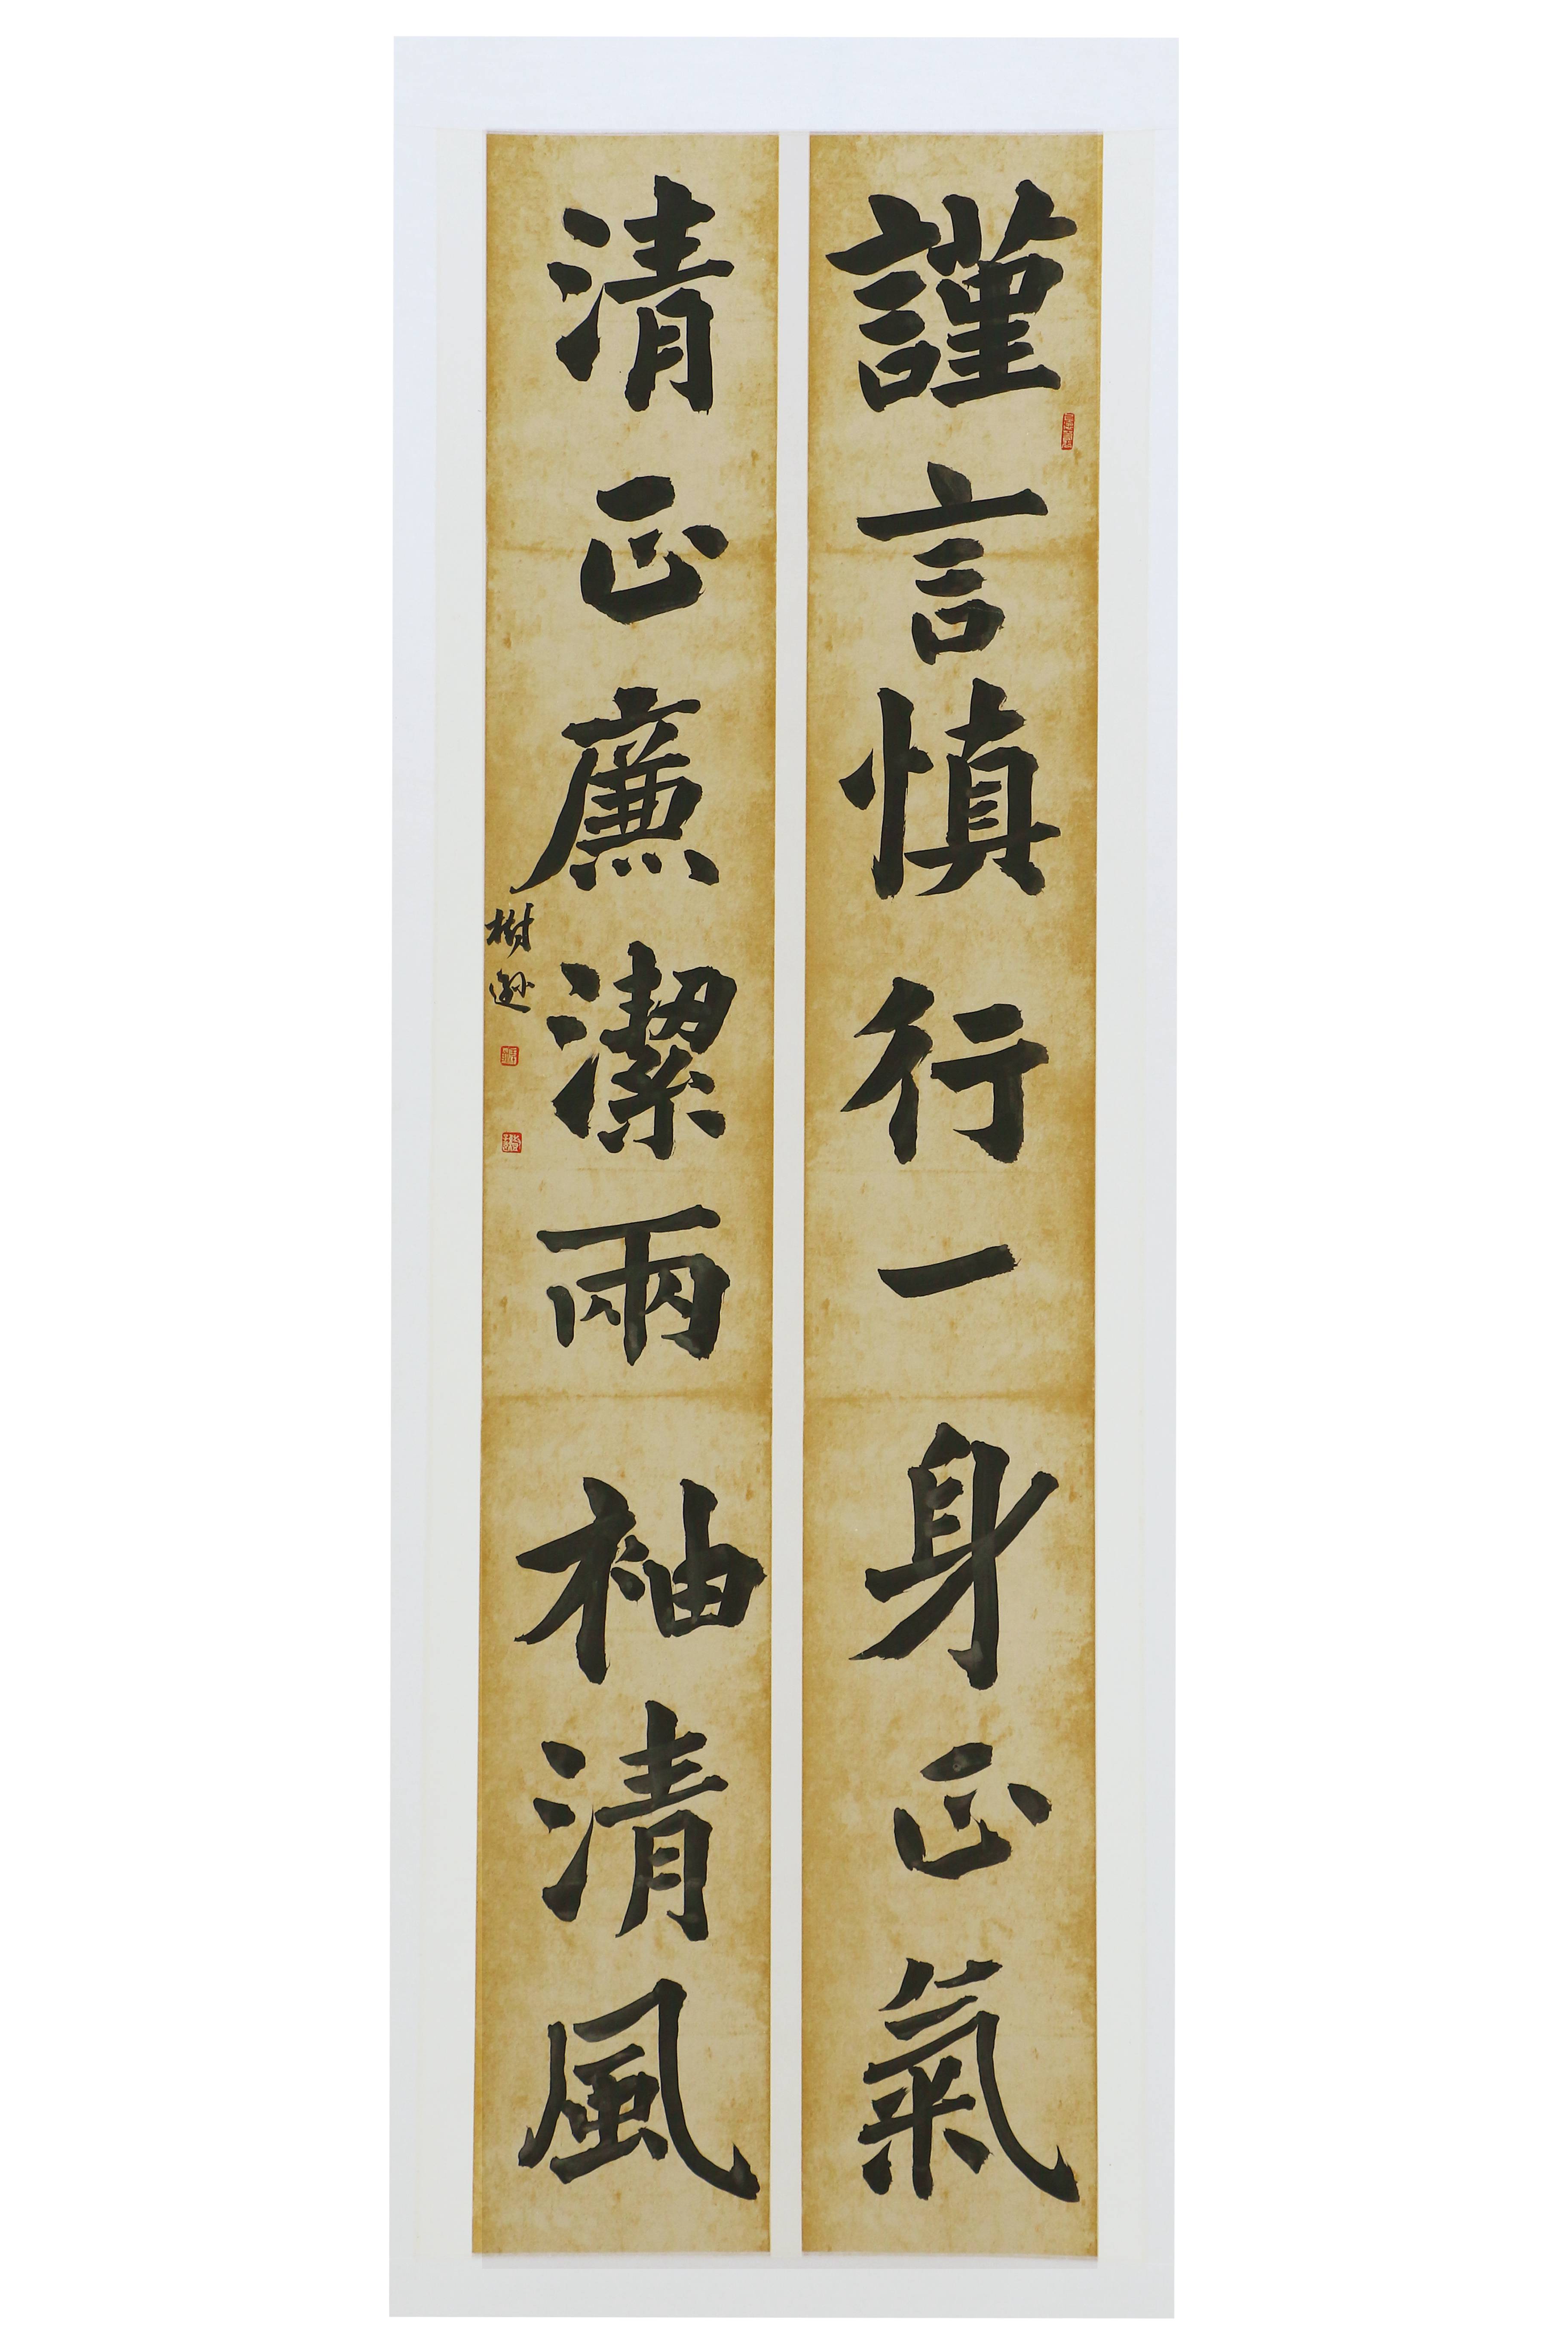 謹言慎行一身正氣
清正廉潔兩袖清風
樹遜